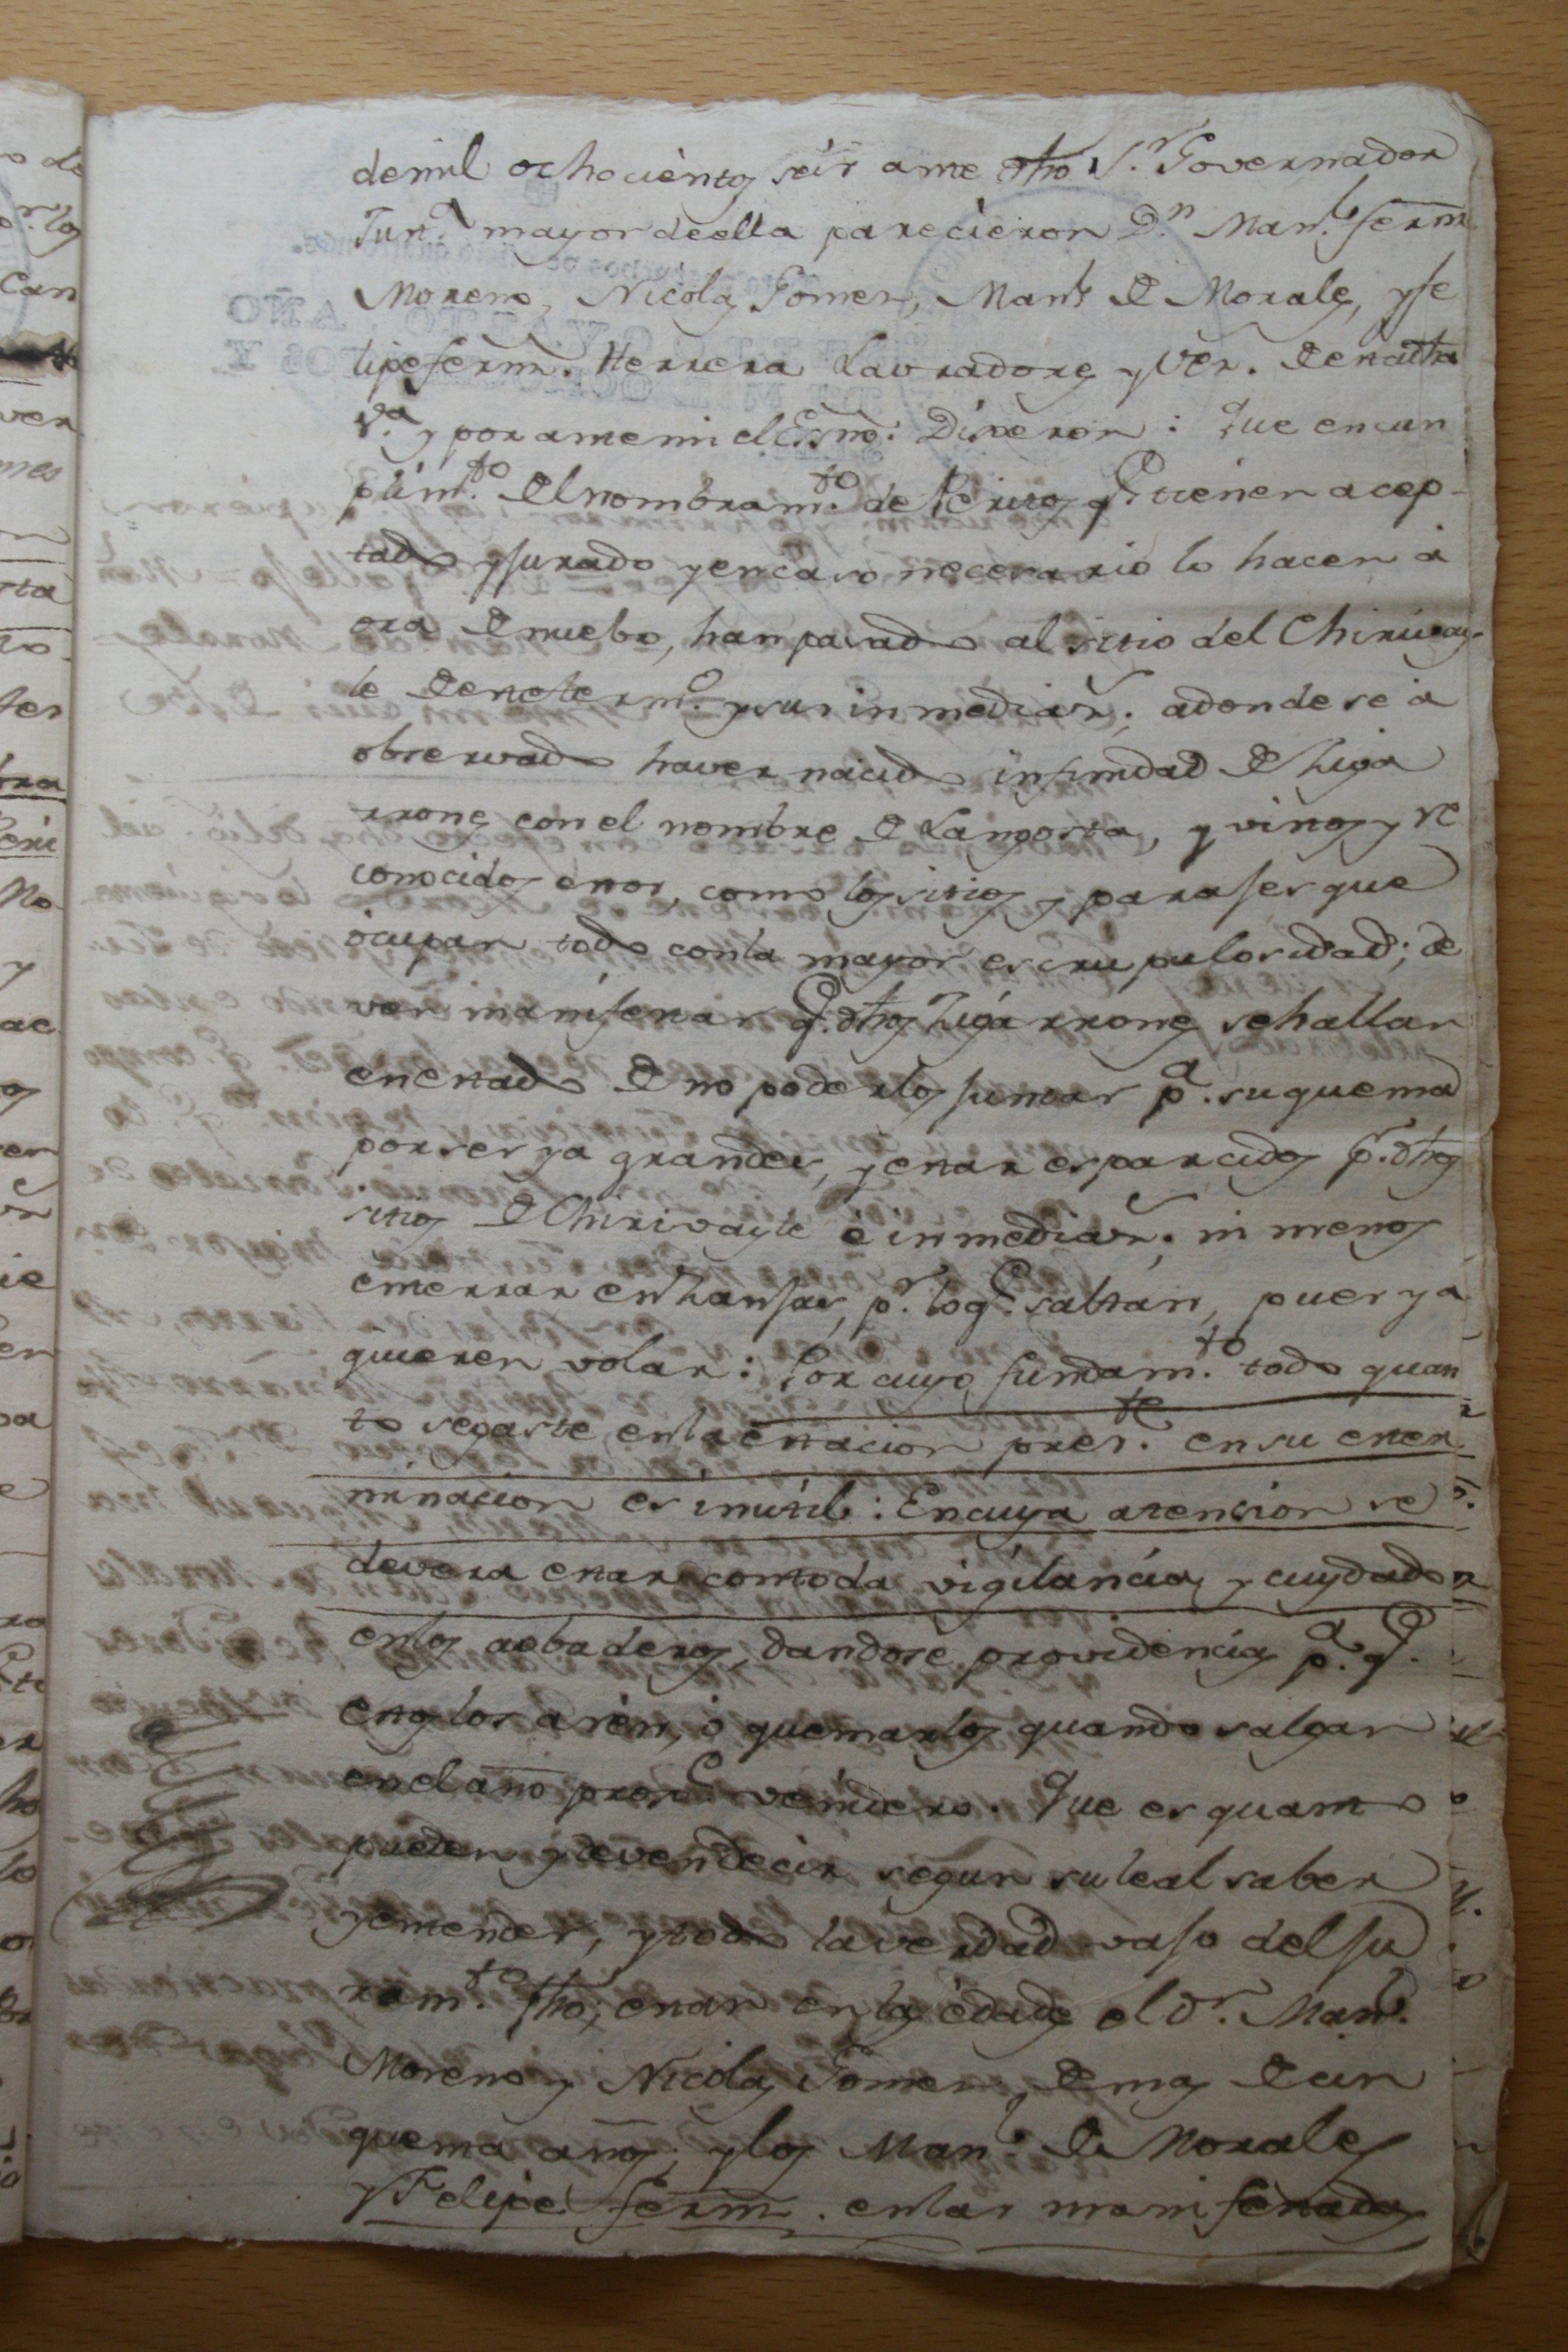 de mil ochocientos seis ante dho S.r Governador
Jun.a mayor de ella parecieron D.n Man.l Fernz.
Moreno, Nicolas Gomez, Man.l de Morales, y Fe
lipe Fernz. Herrera Lavradores y Vez. de esta dha
V.a y por ante mi el Essno. Dixeron: Que en cun
plim.to del nombram.to de Peritos q.e tienen acep-
tado y jurado y en caso necesario lo hacen a
ora de nuebo, han pasado al sitio del Chirivay-
le de este term.o y sus inmediaz.s; adonde se a
observado haver nacido infinidad de Ziga
rrones con el nombre de Langosta, y vistos y re
conocidos estos, como los sitios y parajes que
ocupan todo con la mayor escrupulosidad; de
ven manifestar q.e dhos Zigarrones se hallan
en estado de no poderlos juntar p.a su quema
por ser ya grandes, y estar esparcidos p.r dhos
sitios de Chirivayle è inmediaz.s ni menos
enterrar en Zanjas, p.r lo q.e saltan, pues ya
quieren volar: Por cuyo fundam.to todo quan
to se gaste en la estacion pres.te en su exter
minacion es inutil: En cuya atencion se
devera estar con toda vigilancia y cuydado
en los aobaderos, dandose providencias p.a q.e
en ellos aren, ò quemarlos quando salgan
en el año prox.o venidero. Que es quanto
pueden y deven decir segun su leal saber
y entender, y todo la verdad vajo del ju
ram.to fho, estar en las edades el D.n Man.l
Moreno y Nicolas Gomez, de mas de cin
quenta años, y los Man.l de Morales
y Felipe Fernz. en las manifestadas